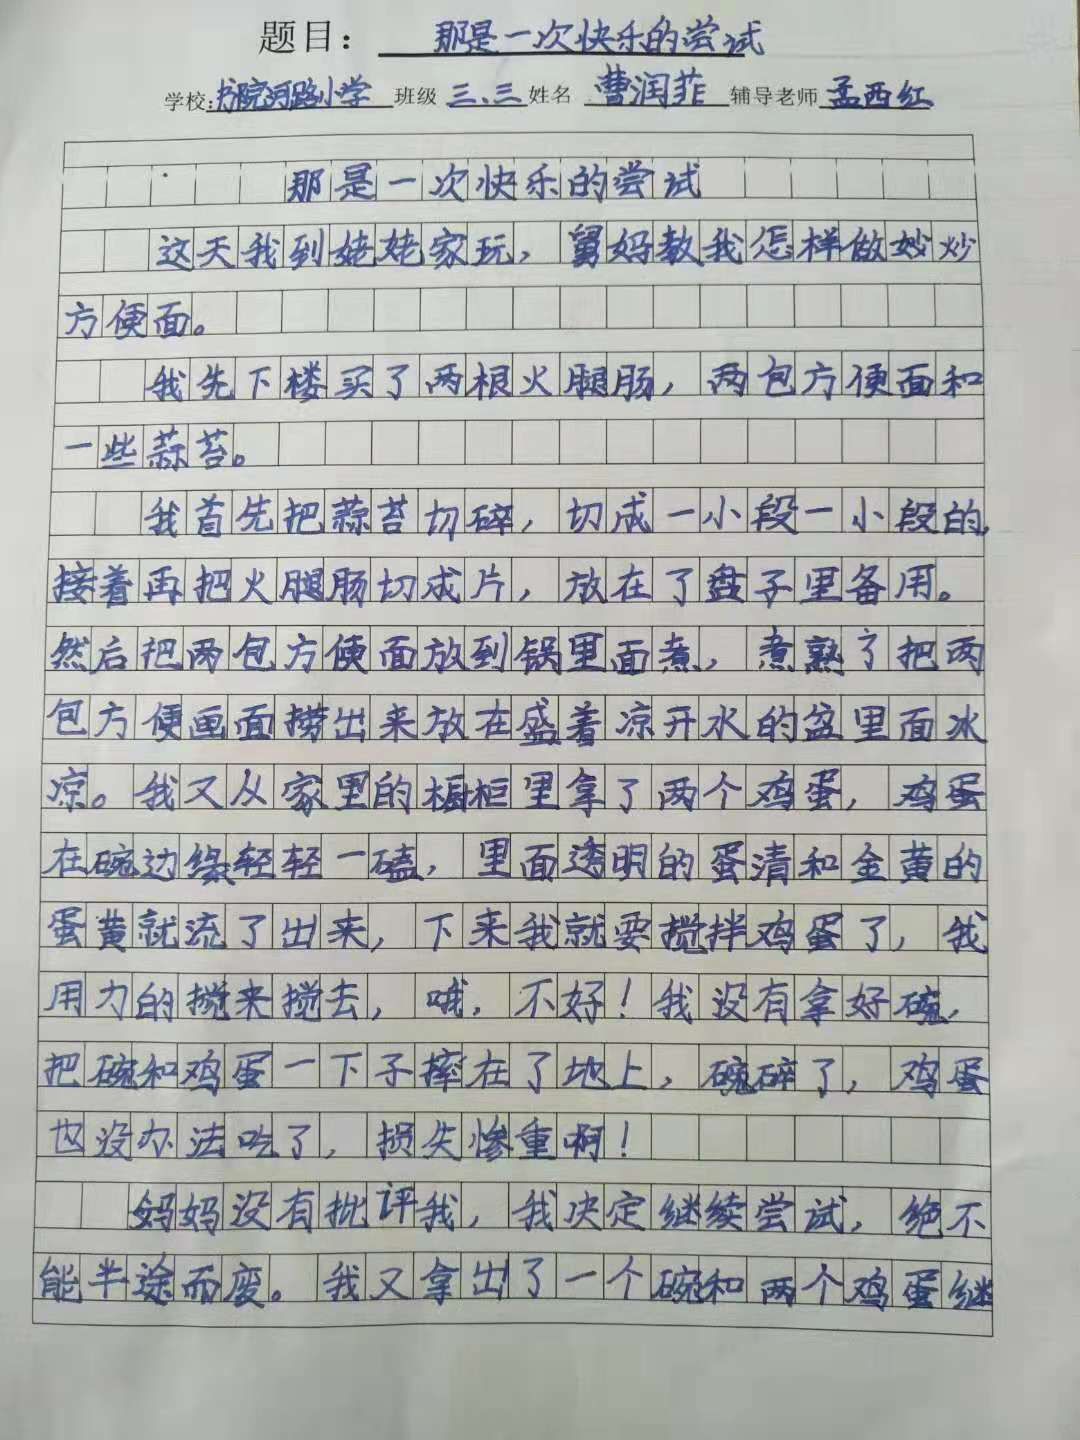 题目： 那是一次快乐的尝试
学校: 书院河路小学 班级 三、三 姓名 曹润菲 辅导老师 孟西红
那是一次快乐的尝试
这天我到姥姥家玩，舅妈教我怎样做妙炒
方便面。
我先下楼买了两根火腿肠，两包方便面和
一些蒜苔。
我首先把蒜苔切碎，切成一小段一小段的，
接着再把火腿肠切成片，放在了盘子里备用。
然后把两包方便面放到锅里面煮，煮熟了把两
包方便画面捞出来放在盛着凉开水的盆里面冰
凉。我又从家里的橱柜里拿了两个鸡蛋，鸡蛋
在碗边缘轻轻一磕，里面透明的蛋清和金黄的
蛋黄就流了出来，下来我就要搅拌鸡蛋了，我
用力的搅来搅去，哦，不好！我没有拿好碗，
把碗和鸡蛋一下子摔在了地上，碗碎了，鸡蛋
也没办法吃了，损失惨重啊！
妈妈没有批评我，我决定继续尝试，绝不
能半途而废。我又拿出了一个碗和两个鸡蛋继